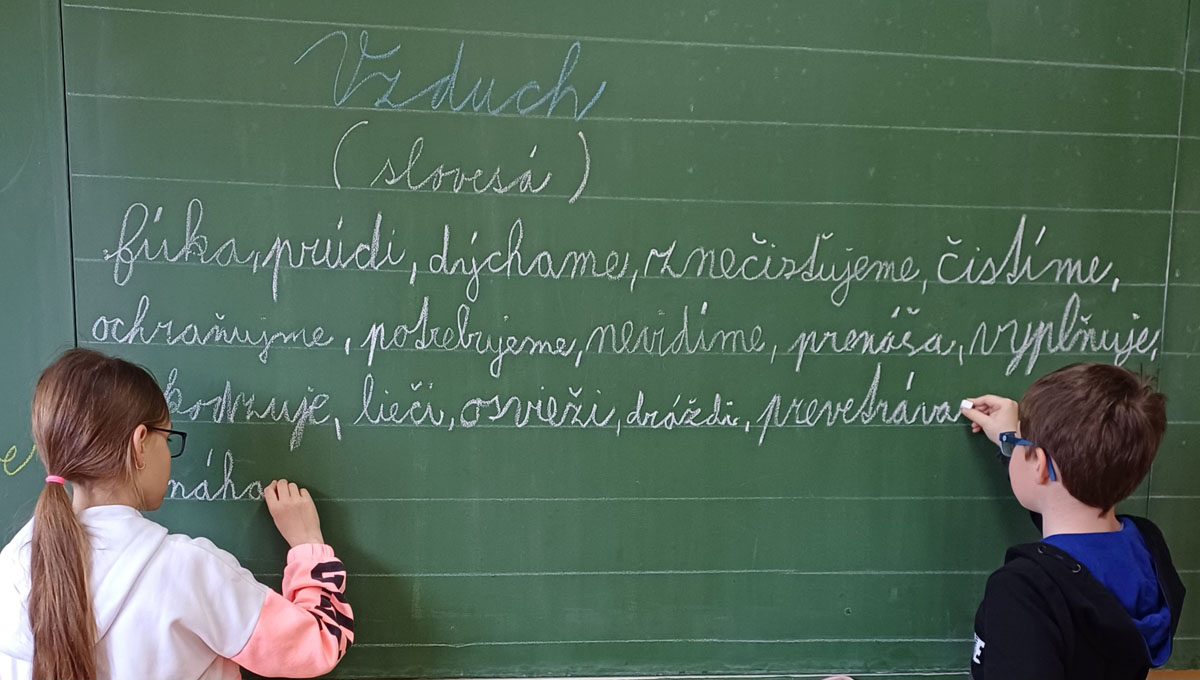 Vzduch
(slovesá)
fúka, prúdi, dýchame, znečisťujeme, čistíme,
ochraňujme, potrebujeme, nevidíme, prenáša, vyplňuje,
lieči, osvieži, dráždi, prevetráva